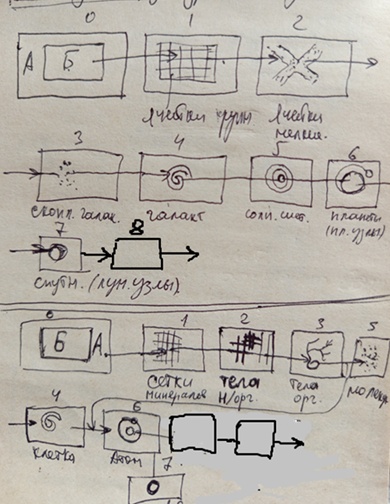 0 1 2
А Б
Ячейки крупн Ячейки
мелкие.
3 4 5 6
скопл. галак. галакт солн. сист. планеты
(пл. узлы)
7 8
спутн. (лун. узлы)
0 1 2 3 5
Б А
сетки тела тела молек
минералов н/орг. орг.
4 6
клетка Атом 7.